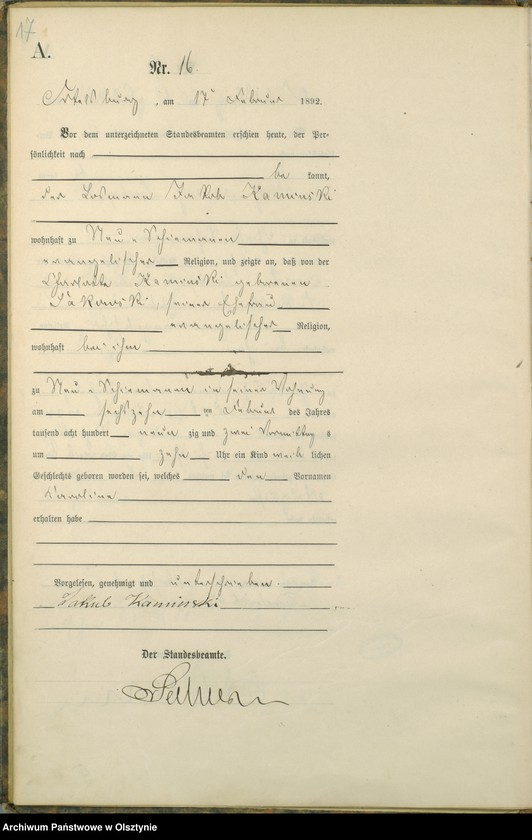 17
A.
Nr. 16.
Ortelsburg, am 17ten Februar 1892.
Vor dem unterzeichneten Standesbeamten erschien heute, der Per-
sönlichkeit nach
be kannt,
der Losmann Jakob Kaminski
wohnhaft zu Neu-Schiemanen
evangelischer Religion, und zeigte an, daß von der
Charlotte Kaminski geborenen
seiner Ehefrau
evangelischer Religion,
wohnhaft bei ihm
zu Neu-Schiemanen in seiner Wohnung
am sechszehn ten Februar des Jahres
tausend acht hundert neun zig und zwei Vormittag s
um zehn Uhr ein Kind weib lichen
Geschlechts geboren worden sei, welches den Vornamen
Karoline
erhalten habe
Vorgelesen, genehmigt und unterschrieben
Jakub Kaminski
Der Standesbeamte.
Archiwum Państwowe w Olsztynie